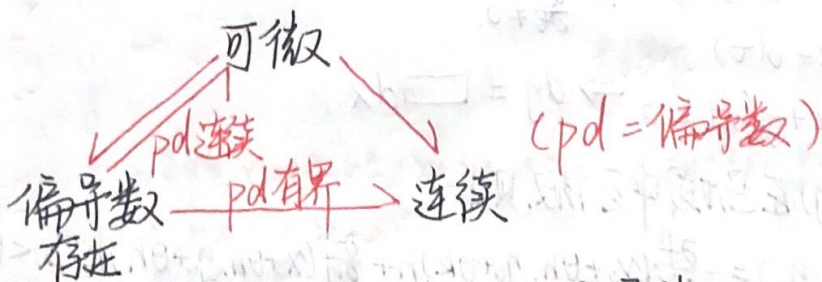 可微
pd连续
(pd=偏导数)
偏导数 pd有界 连续
存在